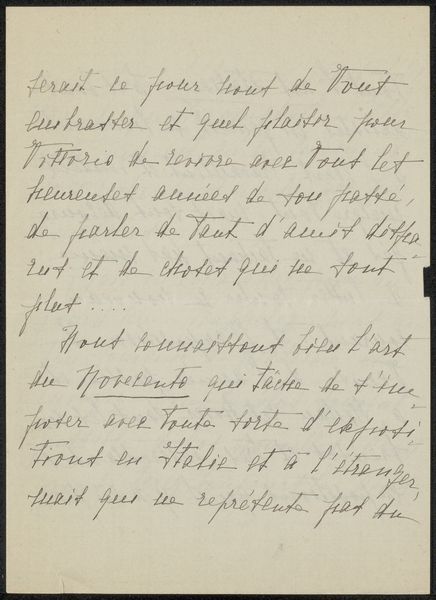 serait-ce pour nous de vous
embrasser et quel plaisir pour
Vittorio de revivre avec vous les
heureuses années de son passé,
de parler de tant d'amis dispa-
rus et de choses qui ne sont
plus ....
Nous connaissons bien l'art
du Novecento qui tâche de s'im-
poser avec toute sorte d'exposi-
tions en Italie et à l'étranger,
mais qui ne représente pas du